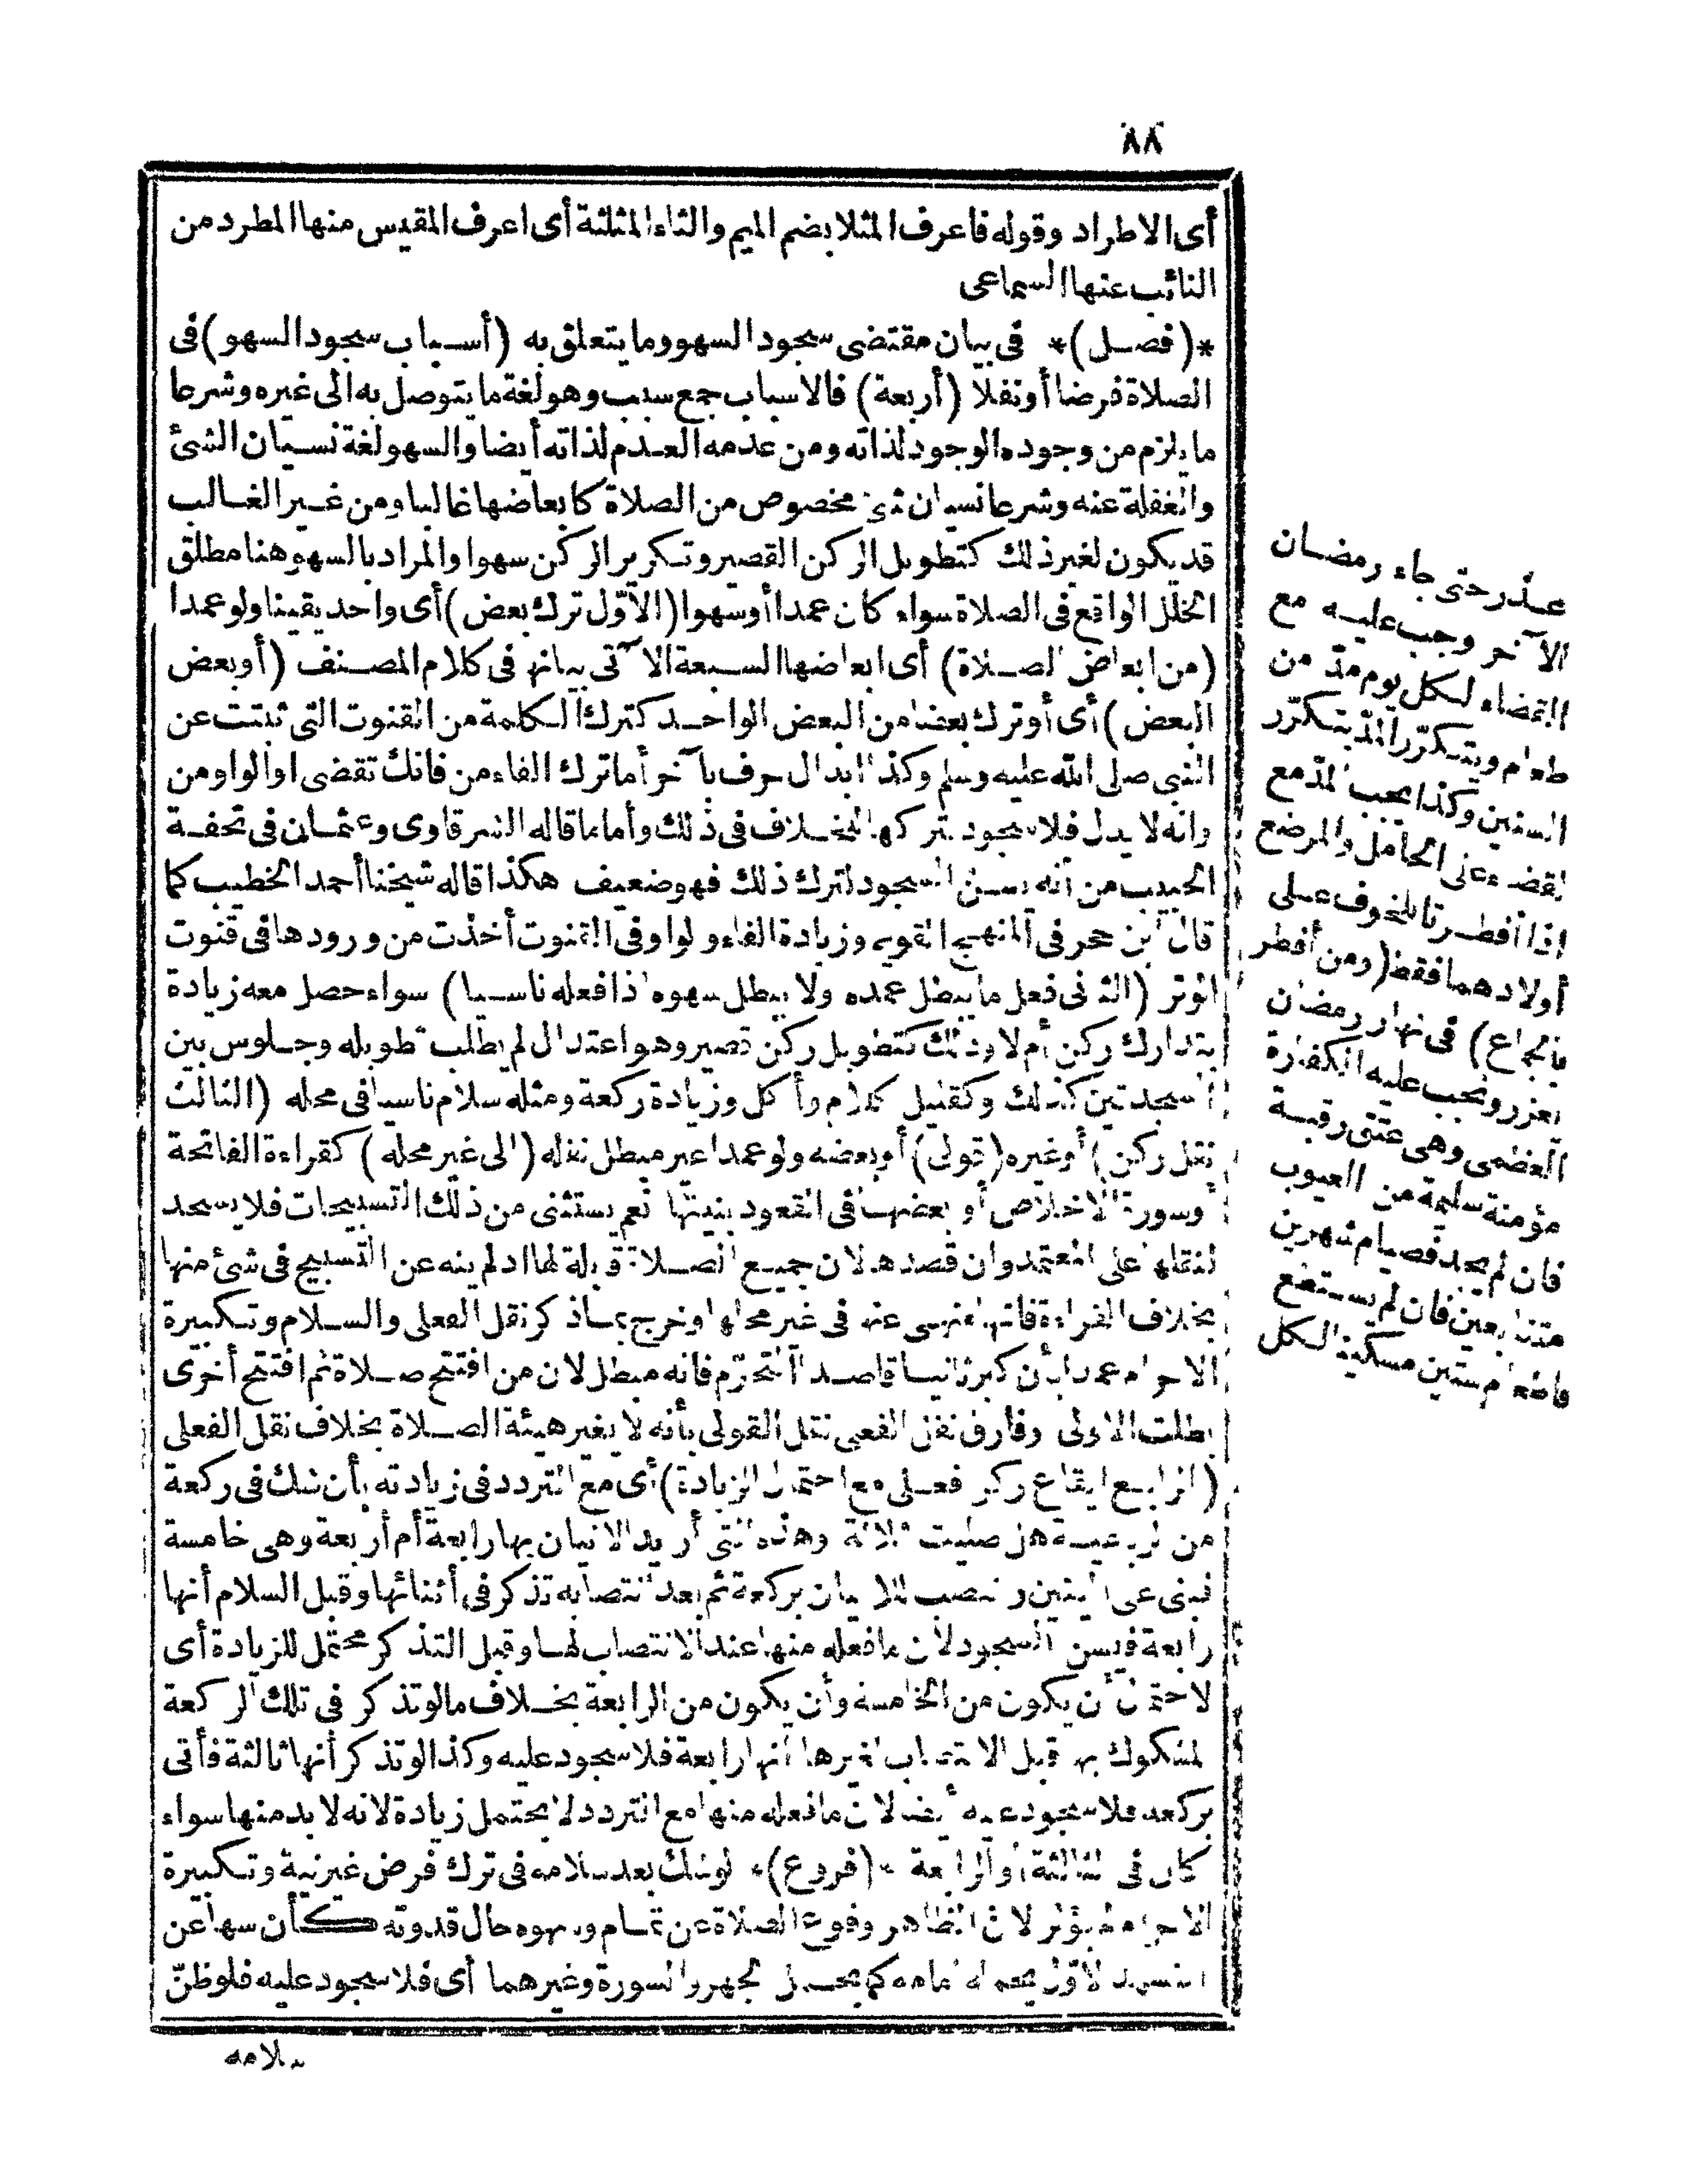 ٨٨
أى الاطراد وقوله فاعرف المثلا بضم الميم والثاء المثلثة أى اعرف المقيس منها المطرد من
النائب عنها السماعى
*(فصل)* فى بيان مقتضى سجود السهو وما يتعلق به (أسباب سجود السهو) فى
الصلاة فرضا أو نفلا (أربعة) فالاسباب جمع سبب وهو لغة ما يتوصل به الى غيره وشرعا
ما يلزم من وجوده الوجود لذاته ومن عدمه العدم لذاته أيضا والسهو لغة نسيان الشئ
والغفلة عنه وشرعا نسيان شئ مخصوص من الصلاة كابعاضها غالبا ومن غير الغالب
قد يكون لغير ذلك كتطويل الركن القصير وتكرير الركن سهوا والمراد بالسهو هنا مطلق
الخلل الواقع فى الصلاة سواء كان عمدا أو سهوا (الاوّل ترك بعض) أى واحد يقينا ولو عمدا
(من ابعاض الصلاة) أى ابعاضها السبعة الآتى بيانها فى كلام المصنف (أو بعض
البعض) أى أو ترك بعضا من البعض الواحد كترك الكلمة من القنوت التى ثبتت عن
النبى صلى الله عليه وسلم وكذا ابدال حرف بآخر أما ترك الفاء من فانك تقضى اوالواو من
وانه لا يذل فلا سجود بتركها للخلاف فى ذلك وأما ما قاله الشرقاوى وعثمان فى تحفة
الحبيب من أنه يسن السجود لترك ذلك فهو ضعيف هكذا قاله شيخنا أحمد الخطيب كما
قال ابن حجر فى المنهج القويم وزيادة الفاء والواو فى القنوت أخذت من ورودها فى قنوت
الوتر (الثانى فعل ما يبطل عمده ولا يبطل سهوه اذا فعله ناسيا) سواء حصل معه زيادة
بتدارك ركن أم لا وذلك كتطويل ركن قصير وهو اعتدال لم يطلب تطويله وجلوس بين
السجدتين كذلك وكقليل كلام وأكل وزيادة ركعة ومثله سلام ناسيا فى محله (الثالث
نقل ركن) أو غيره (قولى) أو بعضه ولو عمدا غير مبطل نقله (الى غير محله) كقراءة الفاتحة
أو سورة الاخلاص أو بعضهما فى القعود بنيتها نعم يستثنى من ذلك التسبيحات فلا يسجد
لنقلها على المعتمد وان قصدها لان جميع الصلاة قابلة لها اذ لم ينه عن التسبيح فى شئ منها
بخلاف القراءة فانها منهى عنها فى غير محلها وخرج بما ذكر نقل الفعلى والسلام وتكبيرة
الاحرام عمدا بأن كبر ثانيا قاصدا التحرّم فانه مبطل لان من افتتح صلاة ثم افتتح أخرى
بطلت الاولى وفارق نقل الفعلى نقل القولى بأنه لا يغير هيئة الصلاة بخلاف نقل الفعلى
(الرابع ايقاع ركن فعلى مع احتمال الزيادة) أى مع التردد فى زيادته بأن شك فى ركعة
من رباعية هل صليت ثلاثة وهذه التى أريد الاتيان بها رابعة أم أربعة وهى خامسة
فبنى على اليقين وانتصب للاتيان بركعة ثم بعد انتصابه تذكر فى أثنائها وقبل السلام أنها
رابعة فيسن السجود لان ما فعله منها عند الانتصاب لها وقبل التذكر محتمل للزيادة أى
لاحتمال أن يكون من الخامسة وأن يكون من الرابعة بخلاف ما لو تذكر فى تلك الركعة
المشكوك بها قبل الانتصاب لغيرها انها رابعة فلا سجود عليه وكذا لو تذكر أنها ثالثة فأتى
بركعة فلا سجود عليه أيضا لان ما فعله منها مع التردد لا يحتمل زيادة لانه لا بد منها سواء
كان فى الثالثة أو الرابعة *(فروع)* لو شك بعد سلامه فى ترك فرض غير نية وتكبيرة
الاحرام لم يؤثر لان الظاهر وقوع الصلاة عن تمام وسهوه حال قدوته كأن سها عن
التشهد الاوّل يحمله امامه كما يحمل الجهر والسورة وغيرهما أى فلا سجود عليه فلو ظنّ
سلامه
عذر حتى جاء رمضان
الآخر وجب عليه مع
القضاء لكل يوم مدّ من
طعام ويتكرّر المدّ بتكرّر
السنين وكذا يجب المدّ مع
القضاء على الحامل والمرضع
اذا أفطرتا للخوف على
أولادهما فقط (ومن أفطر
بالجماع) فى نهار رمضان
يعزر وتجب عليه الكفارة
العظمى وهى عتق رقبة
مؤمنة سليمة من العيوب
فان لم يجد فصيام شهرين
متتابعين فان لم يستطع
فاطعام ستين مسكينا لكل